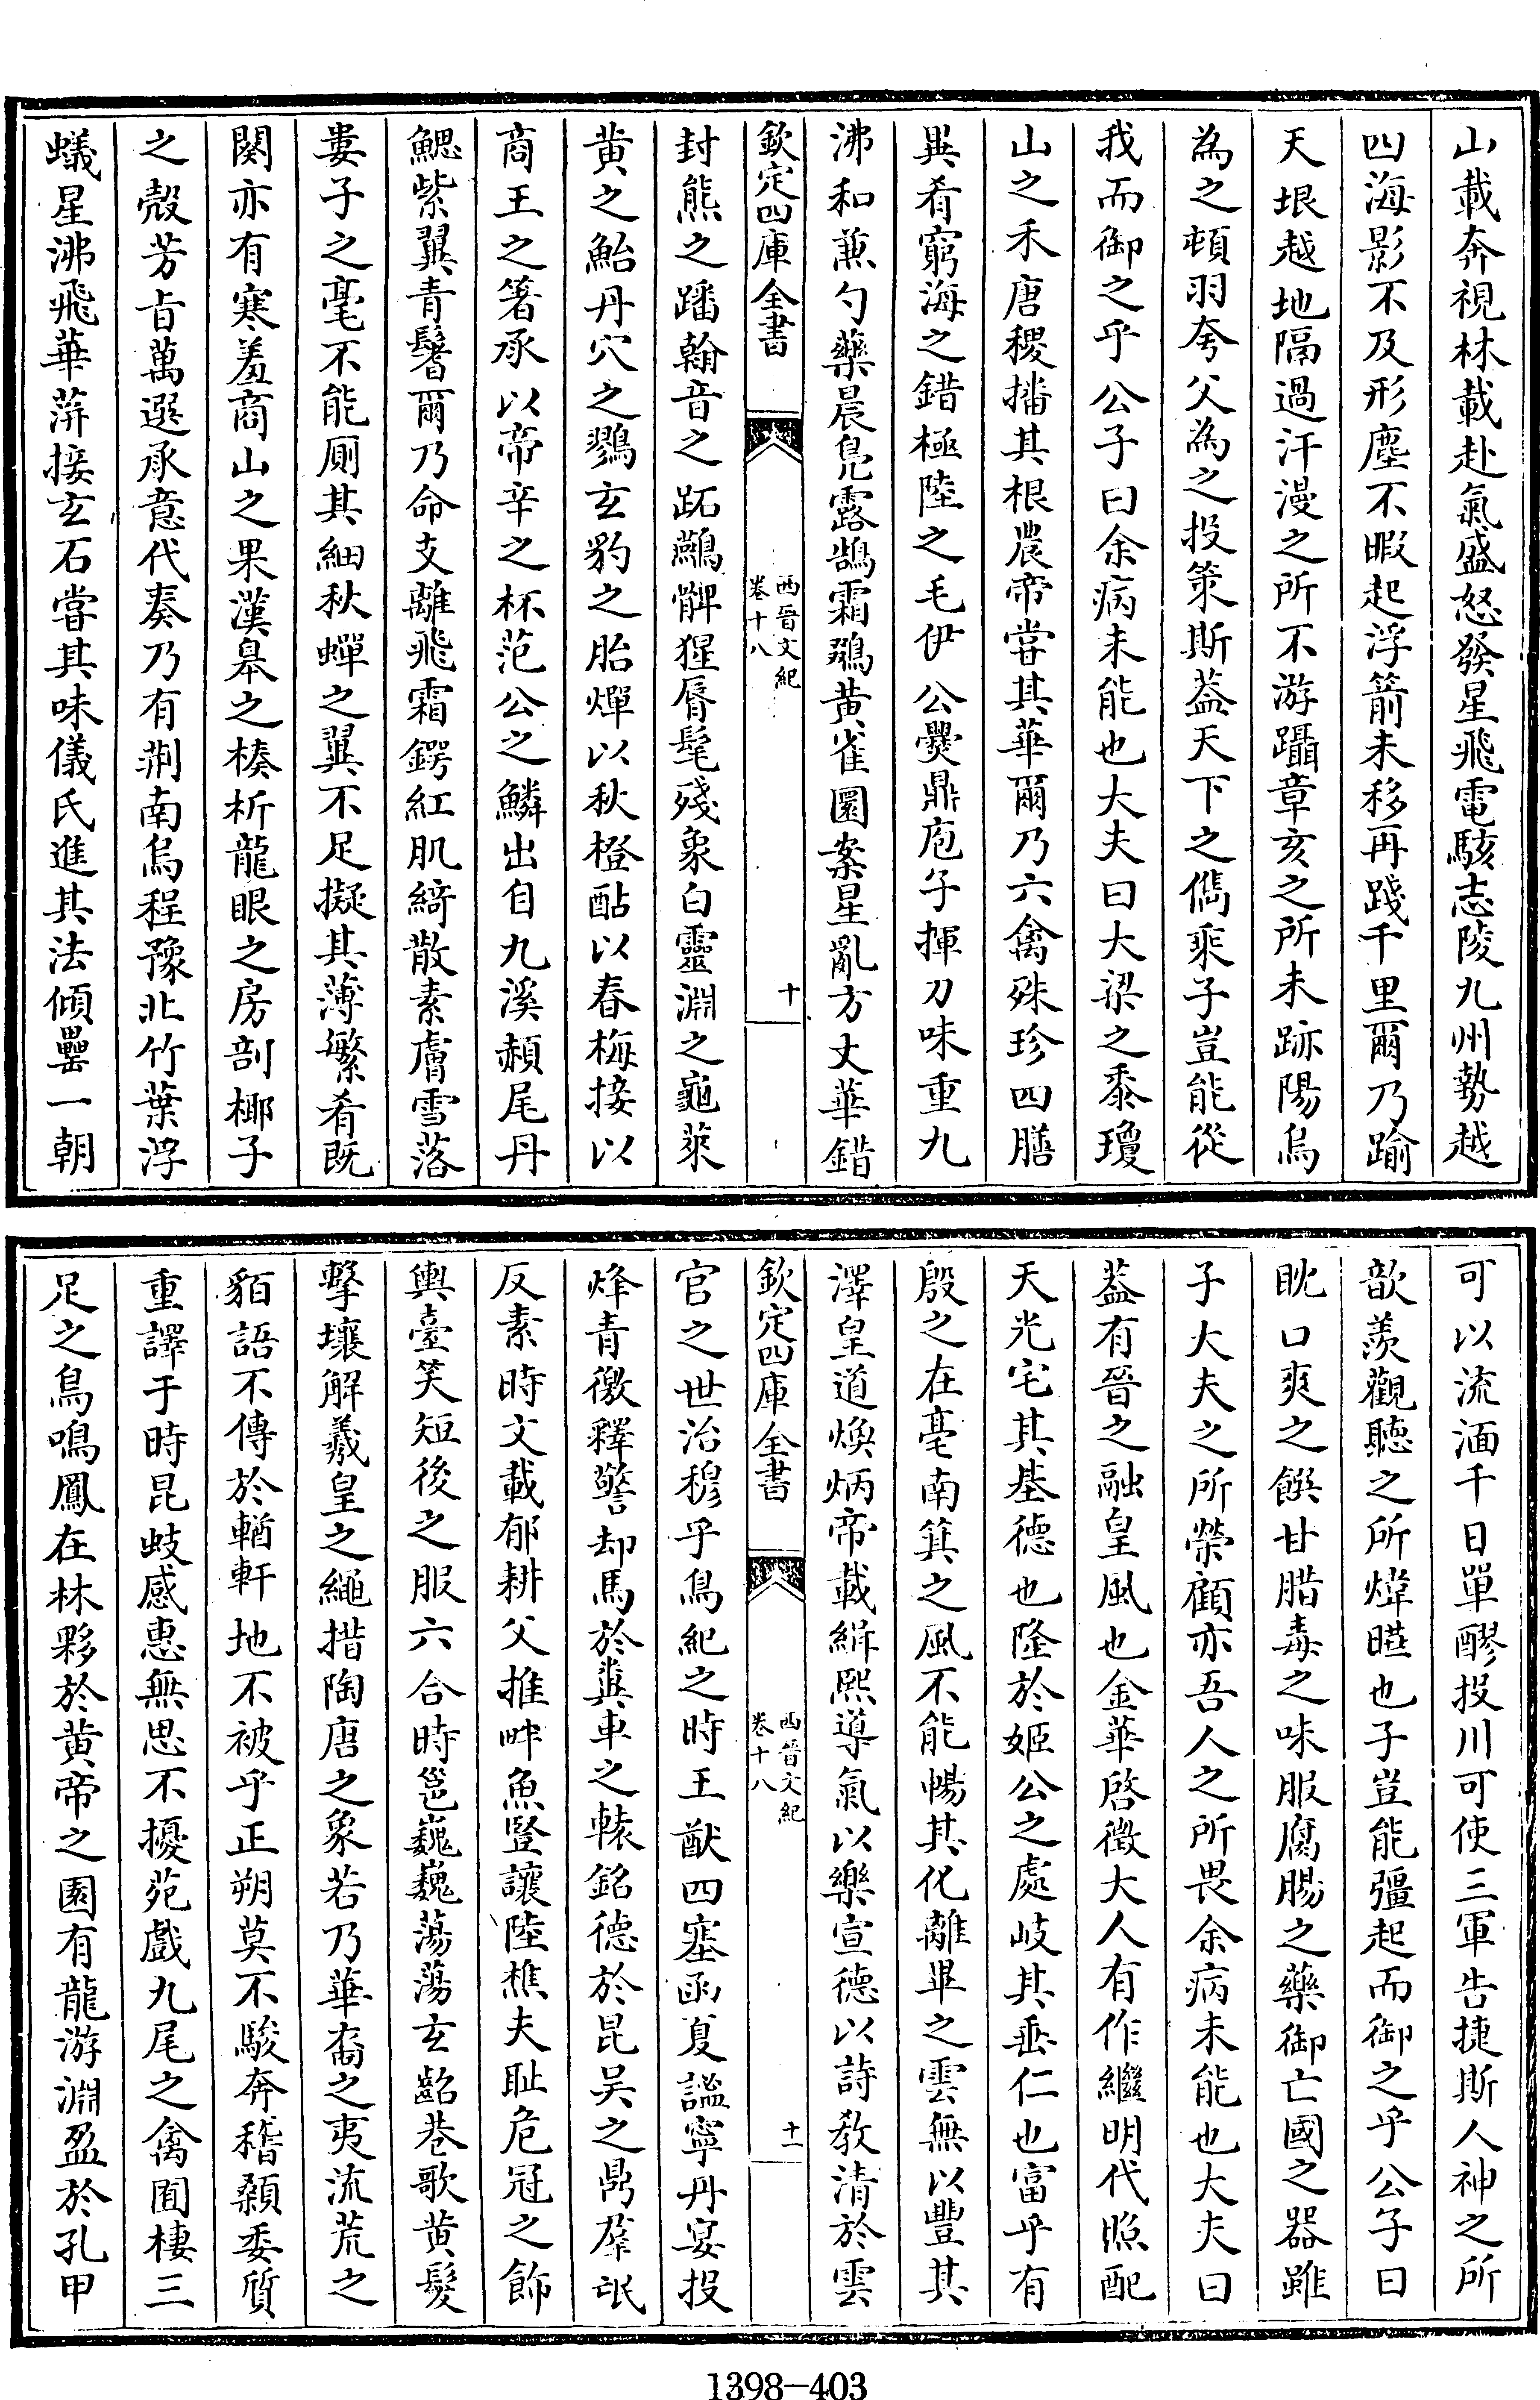 山載奔視林載赴氣盛怒發星飛電駭志陵九州勢越
四海影不及形塵不暇起浮箭未移再踐千里爾乃踰
天垠越地隔過汗漫之所不游躡章亥之所未跡陽烏
為之頓羽夸父為之投策斯蓋天下之儁乘子豈能從
我而御之乎公子曰余病未能也大夫曰大梁之黍瓊
山之禾唐稷播其根農帝嘗其華爾乃六禽殊珍四膳
異肴窮海之錯極陸之毛伊公爨鼎庖子揮刀味重九
沸和兼勺藥晨鳧露鵠霜鵽黃雀圜案星亂方丈華錯
欽定四庫全書
西晉文紀
卷十八
十
封熊之蹯翰音之跖鷰髀猩脣髦殘象白靈淵之龜萊
黃之鮐丹穴之鷚玄豹之胎燀以秋橙酟以春梅接以
商王之箸承以帝辛之杯范公之鱗出自九溪赬尾丹
鰓紫翼青鬐爾乃命支離飛霜鍔紅肌綺散素膚雪落
婁子之毫不能厠其細秋蟬之翼不足擬其薄繁肴既
闋亦有寒羞商山之果漢皋之楱析龍眼之房剖椰子
之殼芳旨萬選承意代奏乃有荆南烏程豫北竹葉浮
蟻星沸飛華蓱接玄石嘗其味儀氏進其法傾罍一朝
可以流湎千日單醪投川可使三軍告捷斯人神之所
歆羨觀聽之所煒曄也子豈能彊起而御之乎公子曰
眈口爽之饌甘腊毒之味服腐腸之藥御亡國之器雖
子大夫之所榮顧亦吾人之所畏余病未能也大夫曰
蓋有晉之融皇風也金華啓徵大人有作繼明代照配
天光宅其基德也隆於姬公之處岐其垂仁也富乎有
殷之在亳南箕之風不能暢其化離畢之雲無以豐其
澤皇道煥炳帝載緝熙導氣以樂宣德以詩教清於雲
欽定四庫全書
西晉文紀
卷十八
十一
官之世治穆乎鳥紀之時王猷四塞函夏謐寧丹宴投
烽青徼釋警却馬於糞車之轅銘德於昆吳之鼎羣氓
反素時文載郁耕父推畔魚豎讓陸樵夫耻危冠之飾
輿臺笑短後之服六合時邕巍巍蕩蕩玄齠巷歌黃髮
擊壤解羲皇之繩措陶唐之象若乃華裔之夷流荒之
貊語不傳於輶軒地不被乎正朔莫不駿奔稽顙委質
重譯于時昆蚑感惠無思不擾苑戲九尾之禽囿棲三
足之鳥鳴鳳在林夥於黃帝之園有龍游淵盈於孔甲
1398—403